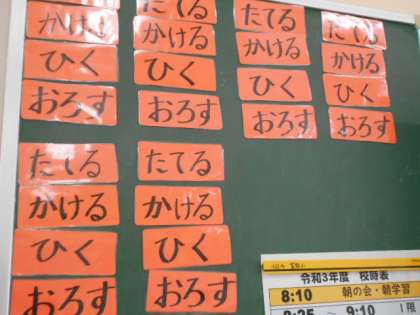 たてる たてる たてる
かける かける かける かける
ひく ひく ひく ひく
おろす おろす おろす おろす
たてる たてる
かける かける
ひく ひく
おろす おろす
令和3年度 校時表
8:10 朝の会・朝学習
8:25 ～ 9:10 1限